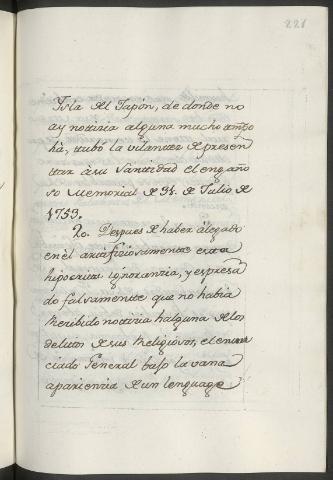 221
Isla del Japón, de donde no
ay noticia alguna mucho tiempo
hà, tubó la vilantez de presen
tar à su Santidad el engaño
so Memorial de 31. de Julio de
1753.
20. Despues de haber alegado
en èl artificiosamente esta
hipocrita ignoranzia, y espresa
do falsamente que no habia
Recibido noticia halguna de los
delitos de sus Religiosos, el enun
ciado General bajo la vana
aparienzia de un lenguage